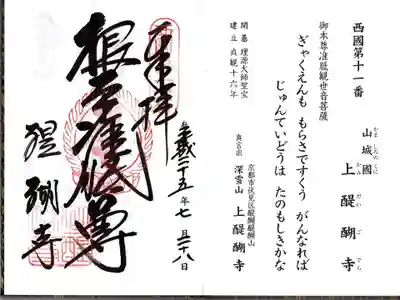 西國第十一番
やましろのくに
山城國
かみ だい ご でら
上醍醐寺
御本尊准胝観世音菩薩
ぎゃくえんも もらさですくう がんなれば
じゅんていどうは たのもしきかな
開基 理源大師聖宝
建立 貞観十六年
京都市伏見区醍醐醍醐山
真言宗 深雪山 上醍醐寺
平成二十五年七月二十八日
奉拝
根本准胝尊
醍醐寺